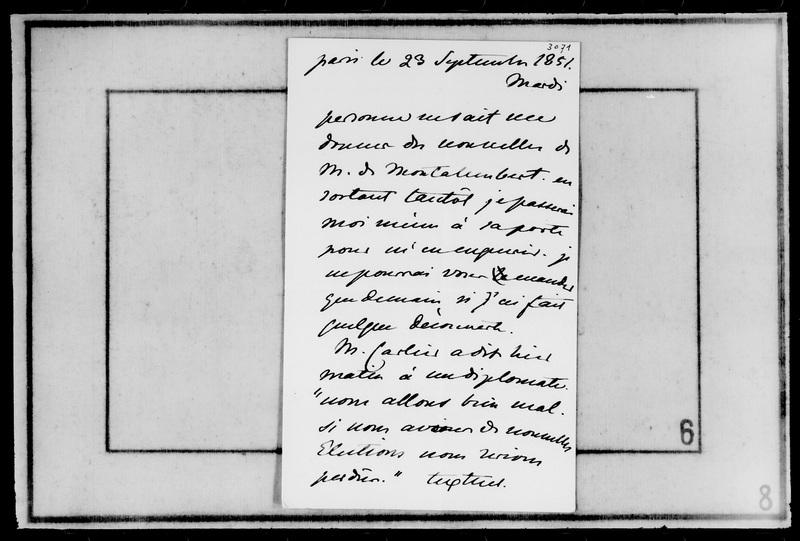 3071
paris le 23 Septembre 1851.
Mardi
personne ne sait me
donner des nouvelles de
M. de Montalembert. en
sortant tantôt je passerai
moi même à sa porte
pour m'en enquérir. je
ne pourrai vous le mander
que demain si j'ai fait
quelque découverte.
M. Carlier a dit hier
matin à un diplomate.
"nous allons bien mal.
si nous avions de nouvelles
Elections nous serions
perdus." textuel.
6
8